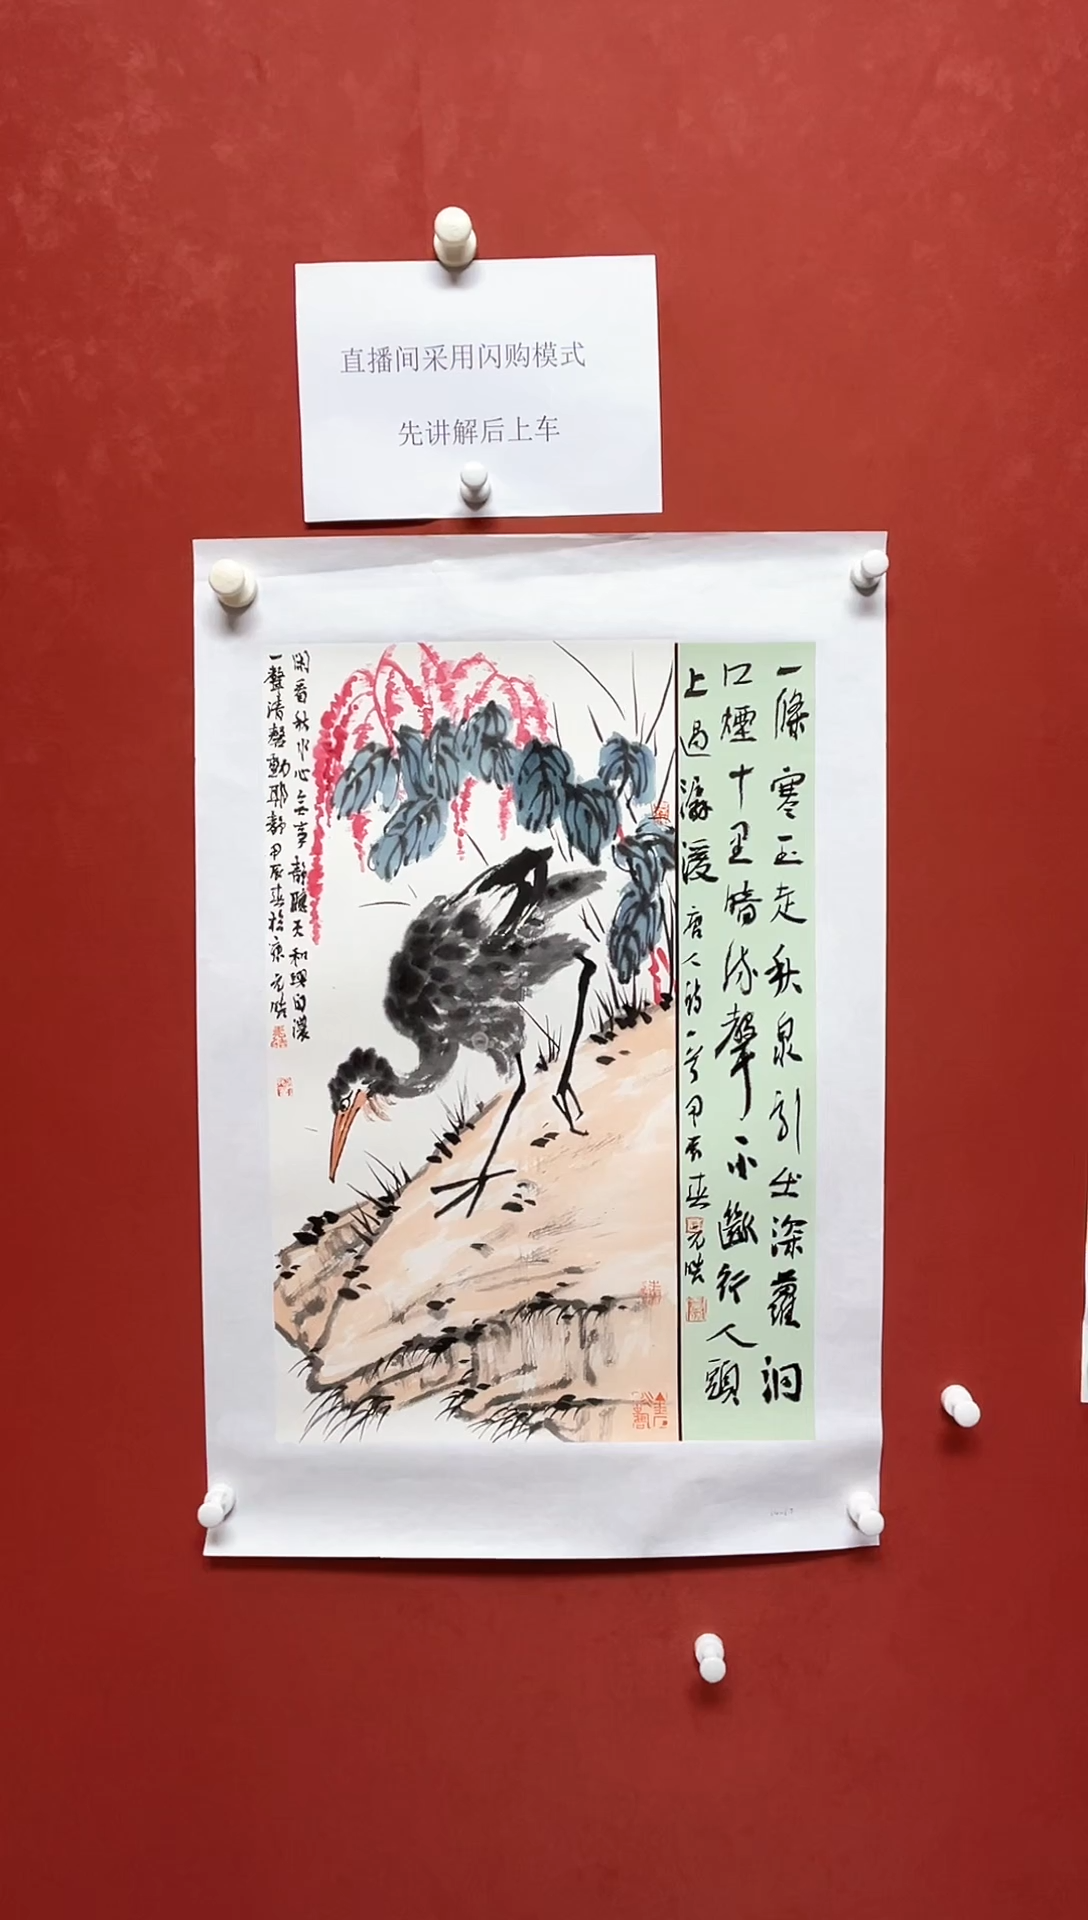 直播间采用闪购模式
先讲解后上车
一條寒玉走秋泉引出深蘿洞
口煙十里暗流聲不斷行人頭
上過潺湲 唐人詩一首 甲辰春 元皓
閑看秋水心無事靜聽天和興自濃
一聲清磬動耶靜 甲辰春於京 元皓